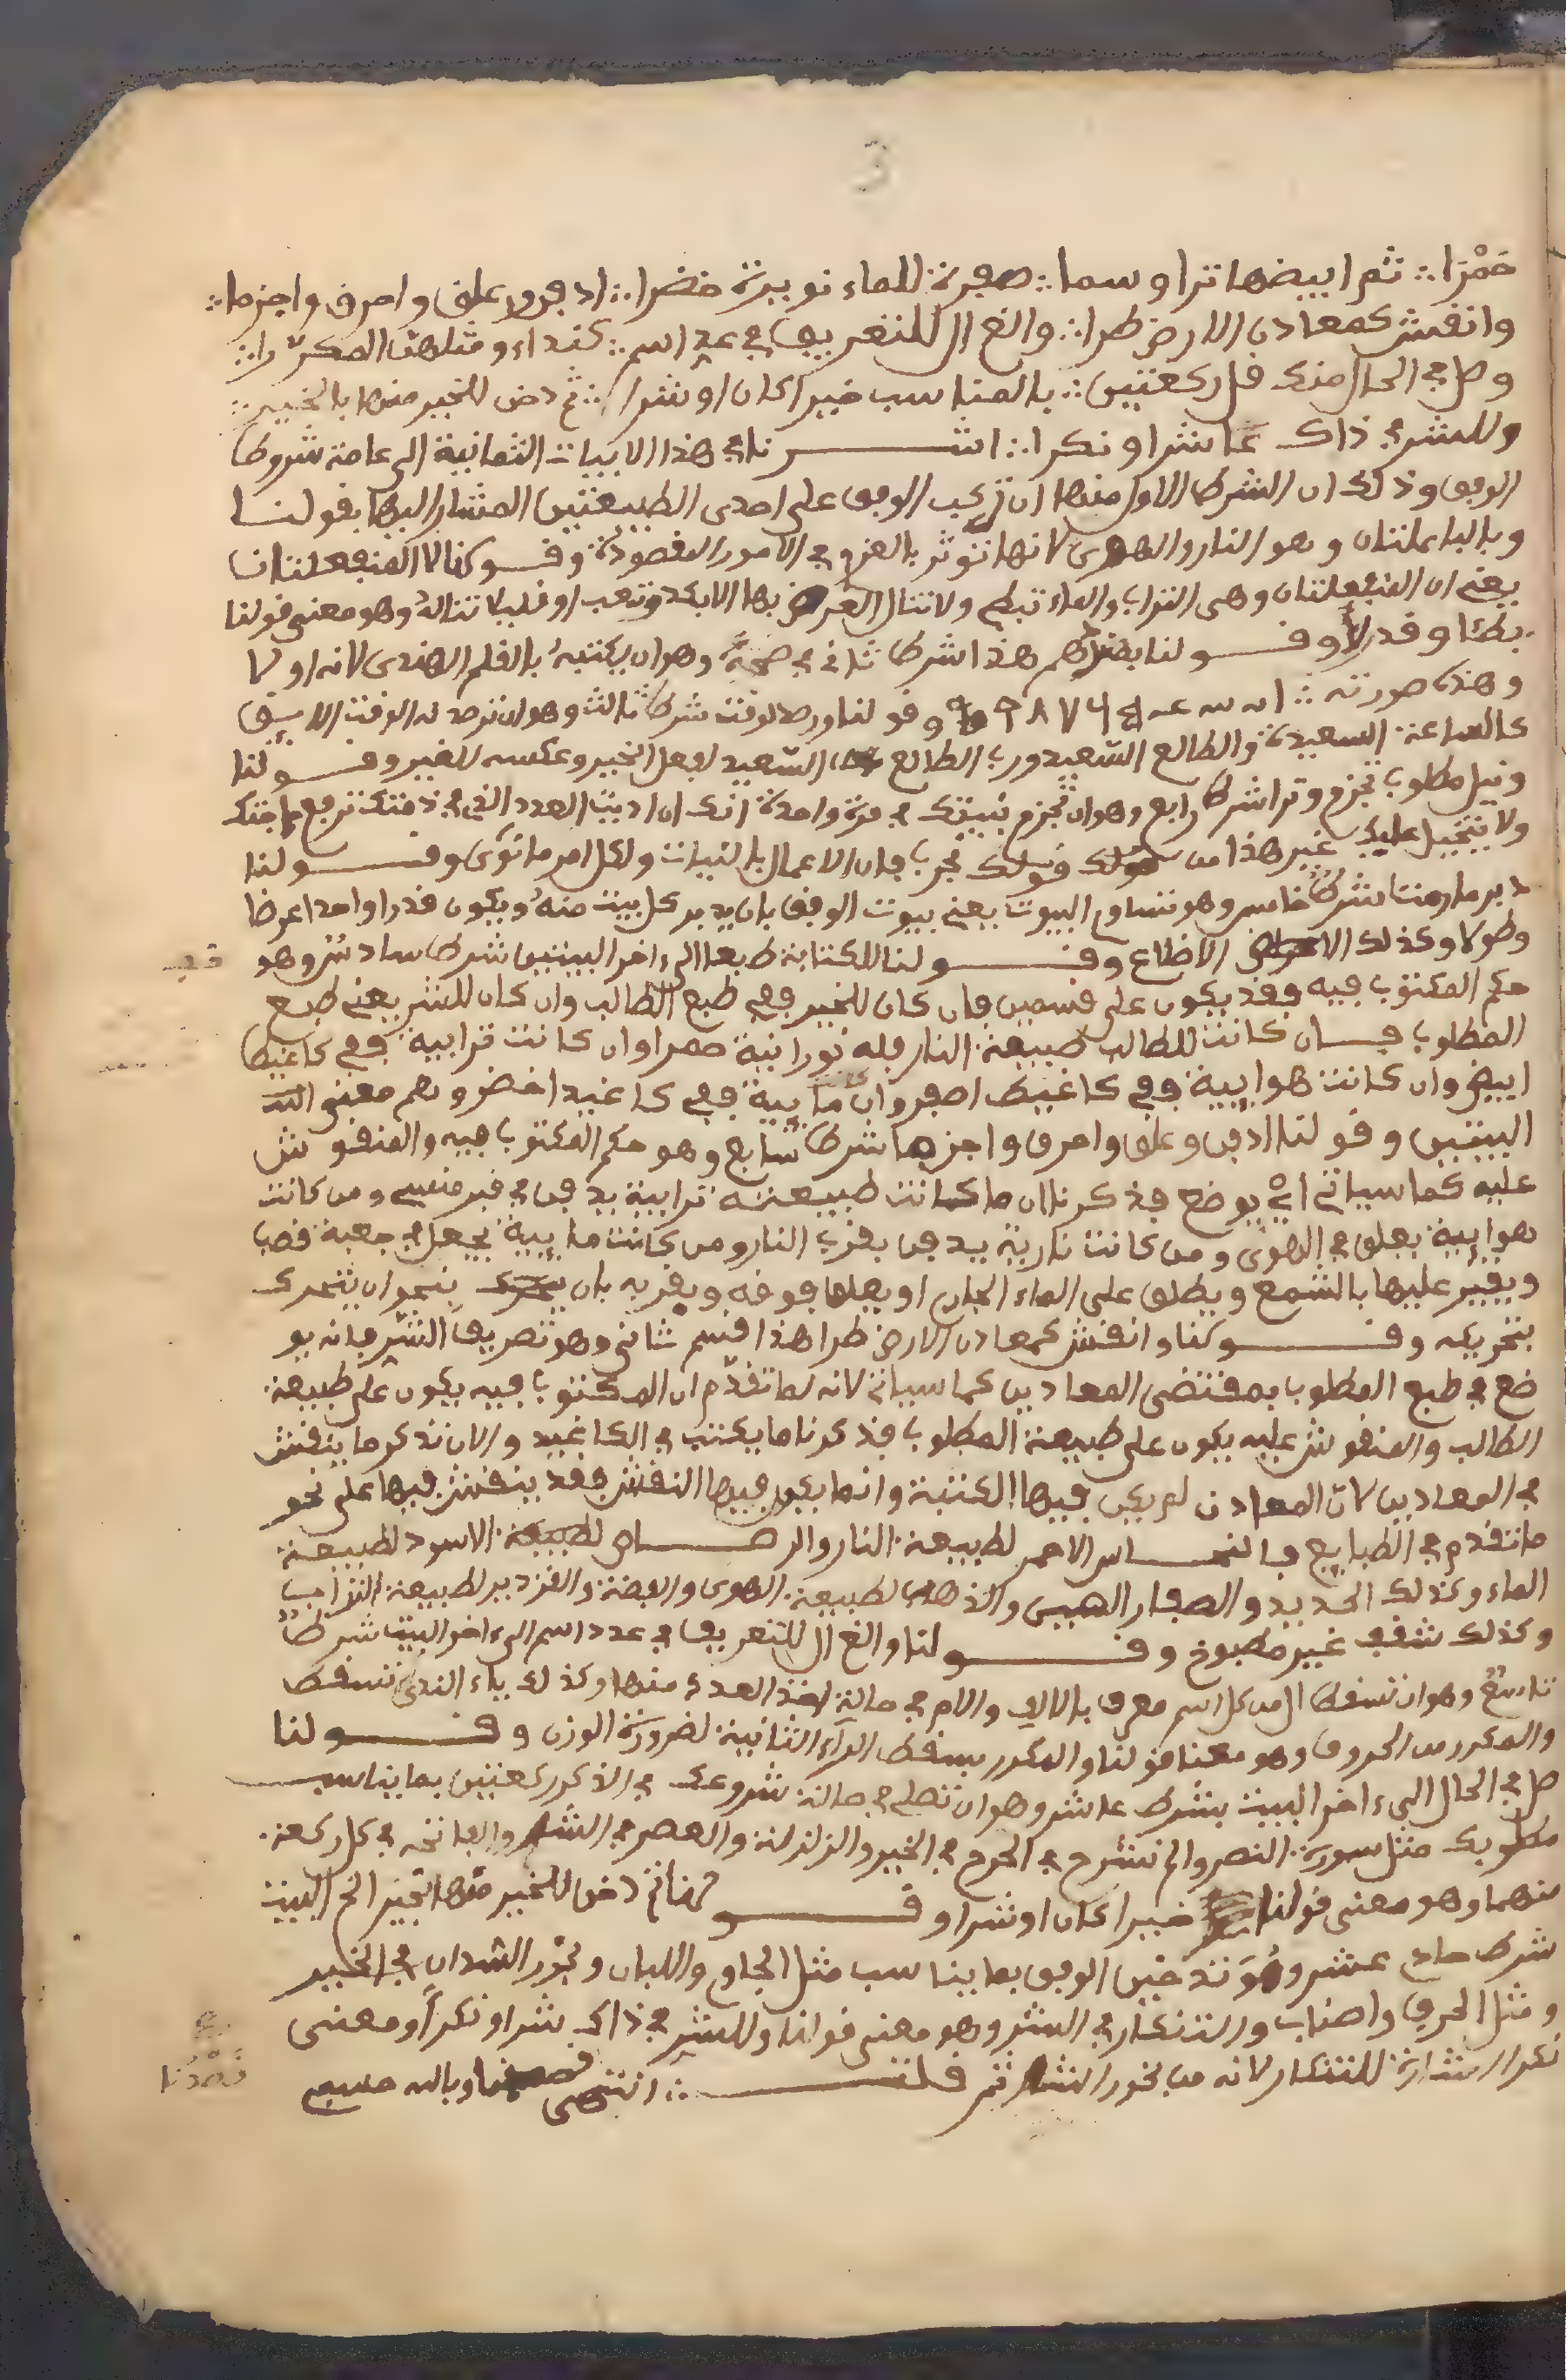 3
حَمْرَا ∴ ثم ابيضها ترا وسما ∴ صفرة للماء نوبرة خضرا ∴ ادفن وعلق واحرق واجزما ∴
وانقش كمعادن الارض طرا ∴ والغ ال للتعريف في عد اسم ∴ كنداء ومثلهن المكرّرا ∴
وصل في الحال منك فل ركعتين ∴ بالمناسب خيرا كان او شرا ∴ ثم دخن للخير منها بالخير ∴
وللشر في ذاك عاشرا ونكرا ∴ اشرنا في هذا الابيات الثمانية الى عامة شروط
الوفق وذلك ان الشرط الاول منها ان تركب الوفق على احدى الطبيعتين المشار اليها بقولنا
وبالباعلتان وهو النار والهوى لانها تؤثر بالعزم في الامور المقصودة وقولنا لا المنفعلتان
يعني ان المنفعلتان وهي التراب والماء تبطء ولا تنال الغرض بها الا بكد وتعب او قليلا تناله وهو معنى قولنا
بطئا وقدرلا وقولنا هذا شرط ثاني في صحة وهو ان يكتبه بالقلم الهندي لانه اولا
وهذه صورته ∴ وقولنا ورصد لوقت شرط ثالث وهو ان ترصد له الوقت الاليق
كالساعة السعيدة والطالع السعيد ورب الطالع السعيد لفعل الخير وعكسه للغير وقولنا
ونيل مطلوب تجزم وترا شرط رابع وهو ان تجزم نيتك في مرة واحدة انك ان اديت العدد الذي في ذمتك ترفع حاجتك
ولا يتخيل عليك غير هذا من قولك نجرب فان الاعمال بالنيات ولكل امر ما نوى وقولنا
دبر ما رمت شرط خامس وهو تساوي البيوت يعني بيوت الوفق بان يدبر كل بيت منه ويكون قدرا واحدا عرضا
وطولا وكذلك الاضلاع وقولنا للكتابة طبعا الى اخر البيتين شرط سادس وهو
حكم المكتوب فيه فقد يكون على قسمين فان كان للخير ففي طبع الطالب وان كان للشر يعني طبع
المطلوب فان كانت للطالب طبيعة النار فله نورانية حمرا وان كانت ترابية ففي كاغيط
ابيض وان كانت هوايية ففي كاغيط اصفر وان كانت مايية ففي كاغيد اخضر وهم معنى
البيتين وقولنا ادفن وعلق واحرق واجزما شرط سابع وهو حكم المكتوب فيه والمنقوش
عليه كما سياتي اي يوضع فذكرنا ان ما كانت طبيعته ترابية يدفن في قبر منسي ومن كانت
هوايية يعلق في الهوى ومن كانت نارية يدفن بقرب النار ومن كانت مايية يجعل في جعبة قصب
ويقير عليها بالشمع ويطلق على الماء الجاري او يعلقها فوقه ويقربه بان ينحو ان يتحرك
بتحريكه وقولنا وانقش كمعادن الارض طرا هذا قسم ثاني وهو تصريف الشر فانه يو
ضع في طبع المطلوب بمقتضى المعادين كما سياتي لانه لما تقدم ان المكتوب فيه يكون على طبيعة
الطالب والمنقوش عليه يكون على طبيعة المطلوب فذكرنا ما يكتب في الكاغيد والان نذكر ما ينقش
في المعادين لان المعادن لم يكن فيها الكتبة وانما يكون فيها النقش فقد ينقش فيها على نحو
ما تقدم في الطبايع فالنحاس الاحمر لطبيعة النار والرصاص لطبيعة الاسود لطبيعة
الماء وكذلك الحديد والصفار الهبس والذهب لطبيعة الهوى والفضة والقزدير لطبيعة التراب
وكذلك شقف غير مطبوخ وقولنا والغ ال للتعريف في عدد اسم الى اخر البيت شرط
تاسع وهو ان تسقط ال من كل اسم معرف بالالف والام في حالة اخذ العدد منها وكذلك ياء الندى تسقط
والمكرر من الحروف وهو معنا قولنا والمكرر بسقط الراء الثانية لضرورة الوزن وقولنا
صل في الحال الى اخر البيت شرط عاشر وهو ان تصلي في حالة شروعك في الذكر ركعتين بما يناسب
مطلوبك مثل سورة النصر والم نشرح في الخير والزلزلة والعصر في الشر والفاتحة في كل ركعة
منهما وهو معنى قولنا خيرا كان او شرا وقولنا ثم دخن للخير منها بخير الخ البيت
شرط حادي عشر وهو تدخين الوفق بما يناسب مثل الجاوي واللبان وبخور السودان في الخير
ومثل الحريف واصناب والتنكار في الشر وهو معنى قولنا وللشر في ذاك شرا ونكرا ومعنى
نكرا اشارة للتنكار لانه من بخور الشر ثم قلت ∴ انتهى وبالله حسبي
قَصْدُنَا